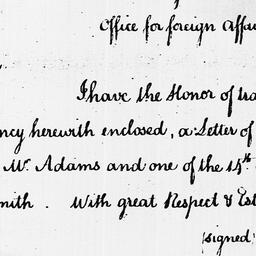 Office for foreign Affai
I have the Honor of tra
ncy herewith enclosed, a Letter of
Mr. Adams and one of the 14th
mith . With great Respect & Est
(signed)